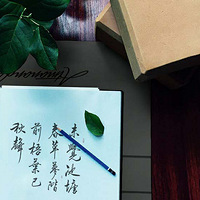 未覺池塘
春草夢階
前梧葉已
秋聲